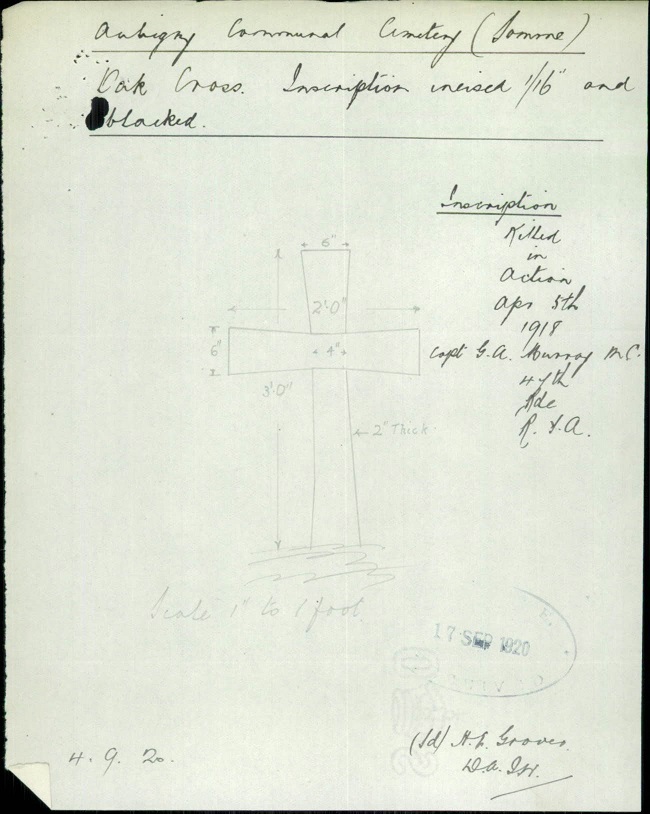 Aubigny Communal Cemetery (Somme)
Oak Cross. Inscription incised 1/16" and
blacked.
Inscription
Killed
in
Action
Apr 5th
1918
Capt G.A. Murray M.C.
47th
Bde
R.F.A.
6"
2'.0"
6"
4"
3'.0"
2" Thick
Scale 1" to 1 foot
17 SEP 1920
(Sd) H.L. Groves
4. 9. 20.